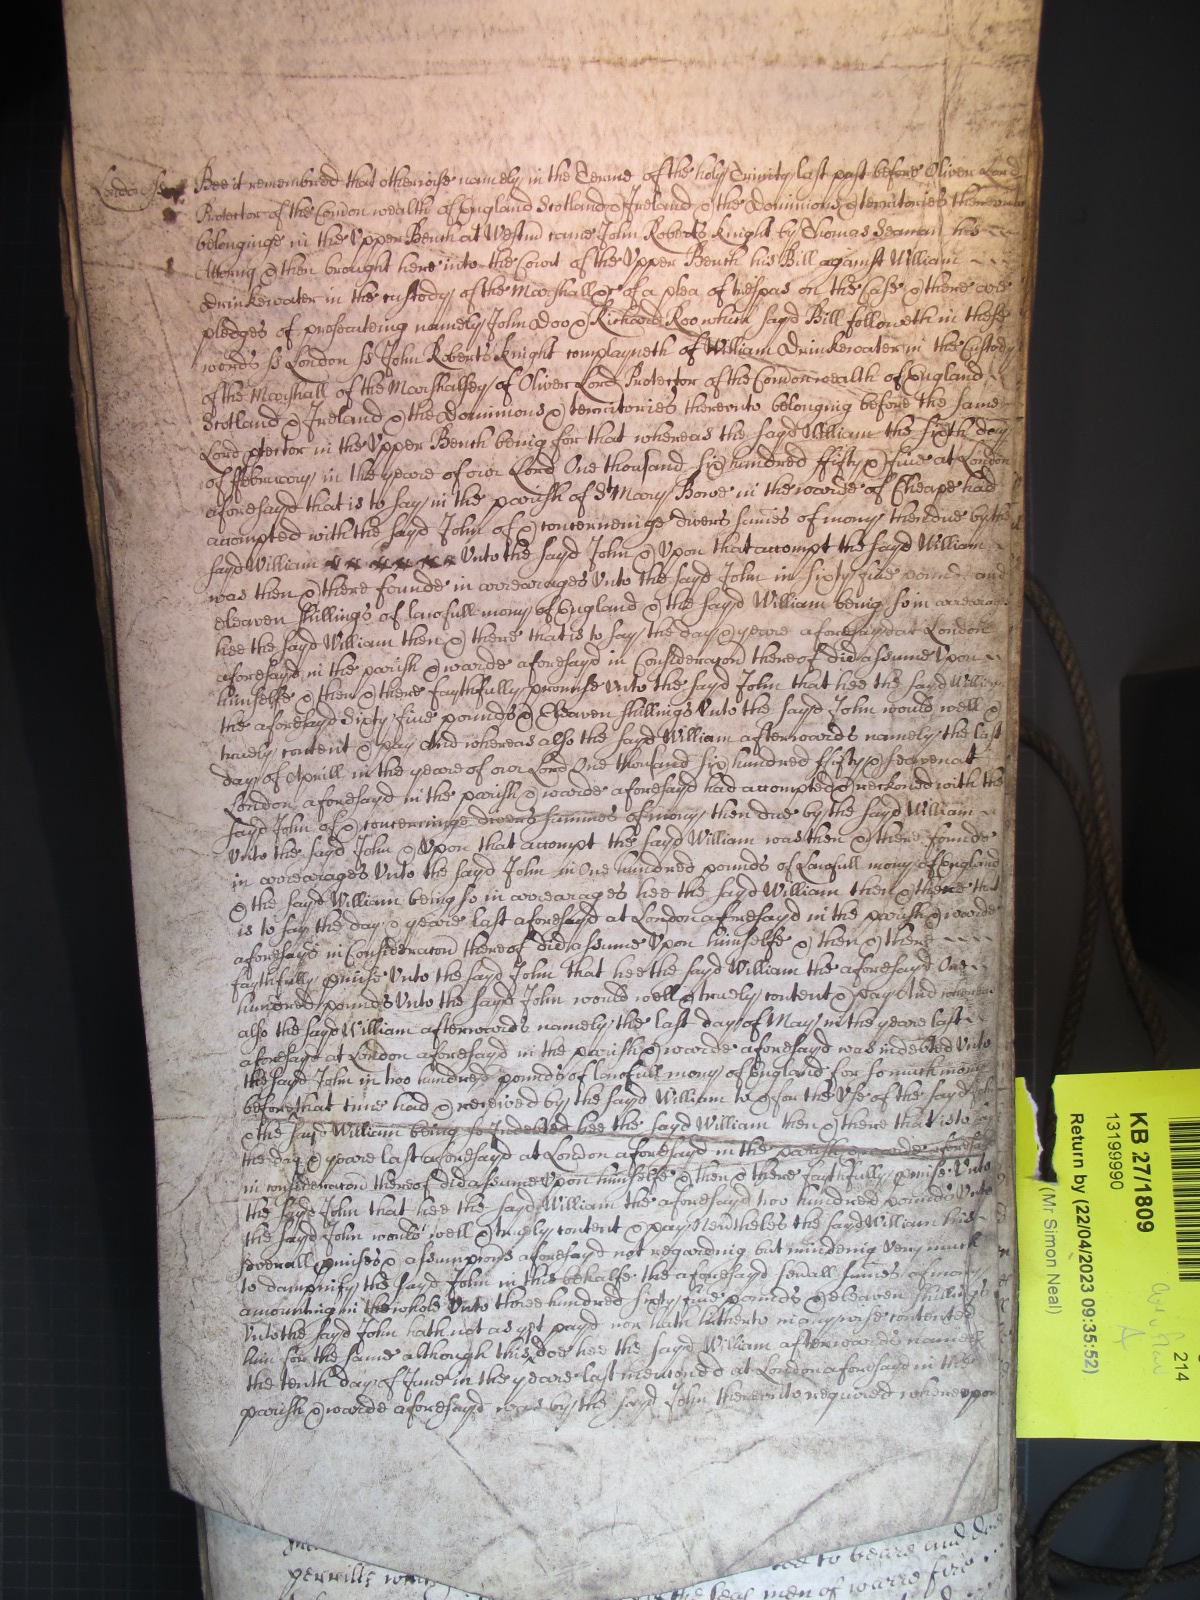 London ss Bee it remembred that otherwise namely in the Terme of the holy Trinity last past before Oliver Lord
Protector of the Comon wealth of England Scotland & Ireland & the Dominions & territories thereunto
belonginge in the Upper Bench at Westm came John Roberts Knight by Thomas Seaman his
Attorny & then brought here into the Court of the Upper Bench his Bill against William
Drinkewater in the custody of the Marshall &c of a plea of trespas on the Case & there are
pledges of prosecuteing namely John Doo & Richard Roo which sayd Bill followeth in these
words ss London ss John Roberts Knight complayneth of William Drinkewater in the Custody
of the Marshall of the Marshalsey of Oliver Lord Protector of the Comon wealth of England
Scotland & Ireland & the Dominions & territories thereunto belonging before the same
Lord ptector in the Upper Bench being for that whereas the sayd William the sixth day
of ffebruary in the yeare of our Lord One thousand six hundred ffifty & five at London
aforesayd that is to say in the parish of St Mary Bowe in the warde of Cheape had
accompted with the sayd John of & concerneinge divers sumes of mony then due by the
sayd William Unto the sayd John & Upon that accompt the sayd William
was then & there founde in arrearages Unto the sayd John in sixty five pounds and
eleaven shillings of lawfull mony of England & the sayd William being so in arrearages
hee the sayd William then & there that is to say the day & yeare aforesayd at London
aforesayd in the parish & warde aforesayd in Consideracon thereof did assume Upon
himselfe & then & there faythfully promise Unto the sayd John that hee the sayd William
the aforesayd sixty five pounds & Eleaven shillings Unto the sayd John would well &
truely content & pay And whereas also the sayd William afterwards namely the last
day of Aprill in the yeare of our Lord One thousand six hundred ffifty & seaven at
London aforesayd in the parish & warde aforesayd had accompted & reckoned with the
sayd John of & concerninge divers summes of mony then due by the sayd William
Unto the sayd John & Upon that accompt the sayd William was then & there founde
in arrearages Unto the sayd John in One hundred pounds of Lawfull mony of England
& the sayd William being so in arrearages hee the sayd William then & there that
is to say the day & yeare last aforesayd at London aforesayd in the parish & warde
aforesayd in Consideracon thereof did assume Upon himselfe & then & there
faythfully pmise Unto the sayd John that hee the sayd William the aforesayd One
hundred pounds Unto the sayd John would well & truely content & pay And whereas
also the sayd William afterwards namely the last day of May in the yeare last
aforesayd at London aforesayd in the parish & warde aforesayd was indebted Unto
the sayd John in two hundred pounds of lawfull mony of England for so much mony
before that time had & received by the sayd William to & for the Use of the sayd John
& the sayd William being so Indebted hee the sayd William then & there that is to say
the day & yeare last aforesayd at London aforesayd in the parish & warde aforesayd
in consideracon thereof did assume Upon himselfe & then & there faythfully pmise Unto
the sayd John that hee the sayd William the aforesayd two hundred pounds Unto
the sayd John would well & truely content & pay Nevertheles the sayd William his
severall pmises & assumpcons aforesayd not regarding but mindenig very much
to dampnify the sayd John in this behalfe the aforesayd sevrall sumes of mony
amounting in the whole Unto three hundred sixty five pounds & eleaven shillings
Unto the sayd John hath not as yet payd nor hath hitherto in any wise contented
him for the same although this doe hee the sayd William afterwards namely
the tenth day of June in the yeare last mencond at London aforesayd in the
parish & warde aforesayd was by the sayd John thereunto required whereupon
to beare and
men of warre
KB 27/1809
13199990
Return by (22/04/2023 09:35:52)
(Mr Simon Neal)
214
A